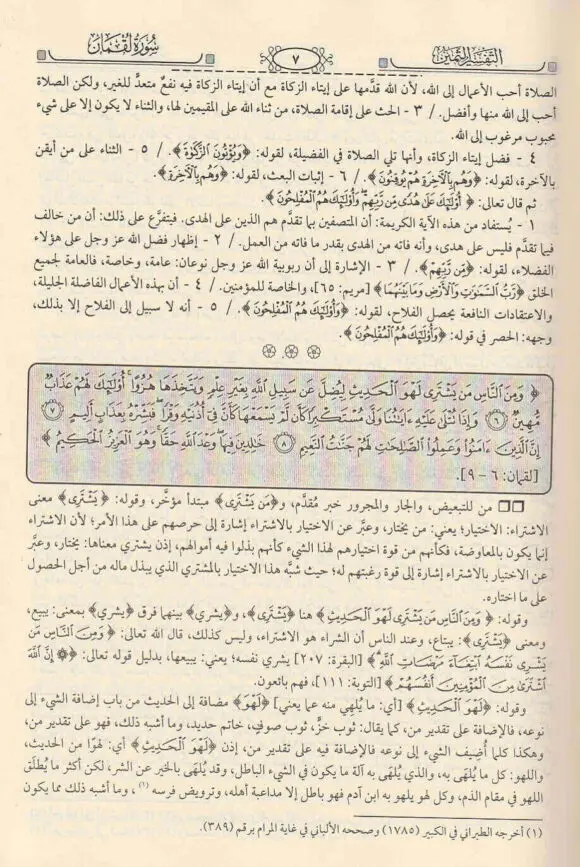 التفسير الثمين
٧
سورة لقمان
الصلاة أحب الأعمال إلى الله، لأن الله قدَّمها على إيتاء الزكاة مع أن إيتاء الزكاة فيه نفعٌ متعدٍّ للغير، ولكن الصلاة
أحب إلى الله منها وأفضل. / ٣ - الحث على إقامة الصلاة، من ثناء الله على المقيمين لها، والثناء لا يكون إلا على شيء
محبوب مرغوب إلى الله.
٤ - فضل إيتاء الزكاة، وأنها تلي الصلاة في الفضيلة، لقوله: ﴿وَيُؤْتُونَ الزَّكَوٰةَ﴾. / ٥ - الثناء على من أيقن
بالآخرة، لقوله: ﴿وَهُم بِالْآخِرَةِ هُمْ يُوقِنُونَ﴾. / ٦ - إثبات البعث، لقوله: ﴿وَهُم بِالْآخِرَةِ﴾.
ثم قال تعالى: ﴿أُوْلَٰٓئِكَ عَلَىٰ هُدًى مِّن رَّبِّهِمْ وَأُوْلَٰٓئِكَ هُمُ الْمُفْلِحُونَ﴾.
١ - يُستفاد من هذه الآية الكريمة: أن المتصفين بما تقدَّم هم الذين على الهدى. فيتفرَّع على ذلك: أن من خالف
فيما تقدَّم فليس على هدى، وأنه فاته من الهدى بقدر ما فاته من العمل. / ٢ - إظهار فضل الله عز وجل على هؤلاء
الفضلاء، لقوله: ﴿مِّن رَّبِّهِمْ﴾. / ٣ - الإشارة إلى أن ربوبية الله عز وجل نوعان: عامة، وخاصة، فالعامة لجميع
الخلق ﴿رَّبُّ السَّمَٰوَٰتِ وَالْأَرْضِ وَمَا بَيْنَهُمَا﴾ [مريم: ٦٥]، والخاصة للمؤمنين. / ٤ - أن بهذه الأعمال الفاضلة الجليلة،
والاعتقادات النافعة يحصل الفلاح، لقوله: ﴿وَأُوْلَٰٓئِكَ هُمُ الْمُفْلِحُونَ﴾. / ٥ - أنه لا سبيل إلى الفلاح إلا بذلك،
وجهه: الحصر في قوله: ﴿وَأُوْلَٰٓئِكَ هُمُ الْمُفْلِحُونَ﴾.
﴿وَمِنَ النَّاسِ مَن يَشْتَرِى لَهْوَ الْحَدِيثِ لِيُضِلَّ عَن سَبِيلِ اللَّهِ بِغَيْرِ عِلْمٍ وَيَتَّخِذَهَا هُزُوًا ۚ أُوْلَٰٓئِكَ لَهُمْ عَذَابٌ
مُّهِينٌ ٦ وَإِذَا تُتْلَىٰ عَلَيْهِ ءَايَٰتُنَا وَلَّىٰ مُسْتَكْبِرًا كَأَن لَّمْ يَسْمَعْهَا كَأَنَّ فِىٓ أُذُنَيْهِ وَقْرًا ۖ فَبَشِّرْهُ بِعَذَابٍ أَلِيمٍ ٧
إِنَّ الَّذِينَ ءَامَنُوا۟ وَعَمِلُوا۟ الصَّٰلِحَٰتِ لَهُمْ جَنَّٰتُ النَّعِيمِ ٨ خَٰلِدِينَ فِيهَا ۖ وَعْدَ اللَّهِ حَقًّا ۚ وَهُوَ الْعَزِيزُ الْحَكِيمُ﴾
[لقمان: ٦ - ٩].
من للتبعيض، والجار والمجرور خبر مُقدَّم، و﴿مَن يَشْتَرِى﴾ مبتدأ مؤخَّر، وقوله: ﴿يَشْتَرِى﴾ معنى
الاشتراء: الاختيار؛ يعني: من يختار، وعبَّر عن الاختيار بالاشتراء إشارة إلى حرصهم على هذا الأمر؛ لأن الاشتراء
إنما يكون بالمعاوضة، فكأنهم من قوة اختيارهم لهذا الشيء كأنهم بذلوا فيه أموالهم، إذن يشتري معناها: يختار، وعبَّر
عن الاختيار بالاشتراء إشارة إلى قوة رغبتهم له؛ حيث شبَّه هذا الاختيار بالمشتري الذي يبذل ماله من أجل الحصول
على ما اختاره.
وقوله: ﴿وَمِنَ النَّاسِ مَن يَشْتَرِى لَهْوَ الْحَدِيثِ﴾ هنا ﴿يَشْتَرِى﴾، و﴿يشري﴾ بينهما فرق ﴿يشري﴾ بمعنى: يبيع،
ومعنى ﴿يَشْتَرِى﴾: يبتاع، وعند الناس أن الشراء هو الاشتراء، وليس كذلك، قال الله تعالى: ﴿وَمِنَ النَّاسِ مَن
يَشْرِى نَفْسَهُ ابْتِغَآءَ مَرْضَاتِ اللَّهِ﴾ [البقرة: ٢٠٧] يشري نفسه؛ يعني: يبيعها، بدليل قوله تعالى: ﴿۞ إِنَّ اللَّهَ
اشْتَرَىٰ مِنَ الْمُؤْمِنِينَ أَنفُسَهُمْ﴾ [التوبة: ١١١]، فهم بائعون.
وقوله: ﴿لَهْوَ الْحَدِيثِ﴾ [أي: ما يُلهِي منه عما يعني] ﴿لَهْوَ﴾ مضافة إلى الحديث من باب إضافة الشيء إلى
نوعه، فالإضافة على تقدير من، كما يقال: ثوب خزٍّ، ثوب صوفٍ، خاتم حديد، وما أشبه ذلك، فهو على تقدير من،
وهكذا كلما أُضيف الشيء إلى نوعه فالإضافة فيه على تقدير من، إذن ﴿لَهْوَ الْحَدِيثِ﴾ أي: لهوًا من الحديث،
واللهو: كل ما يُلهَى به، والذي يُلهَى به آلة ما يكون في الشيء الباطل، وقد يُلهَى بالخير عن الشر، لكن أكثر ما يُطلَق
اللهو في مقام الذم، وكل لهو يلهو به ابن آدم فهو باطل إلا مداعبة أهله، وترويض فرسه (١)، وما أشبه ذلك مما يكون
(١) أخرجه الطبراني في الكبير (١٧٨٥) وصححه الألباني في غاية المرام برقم (٣٨٩).